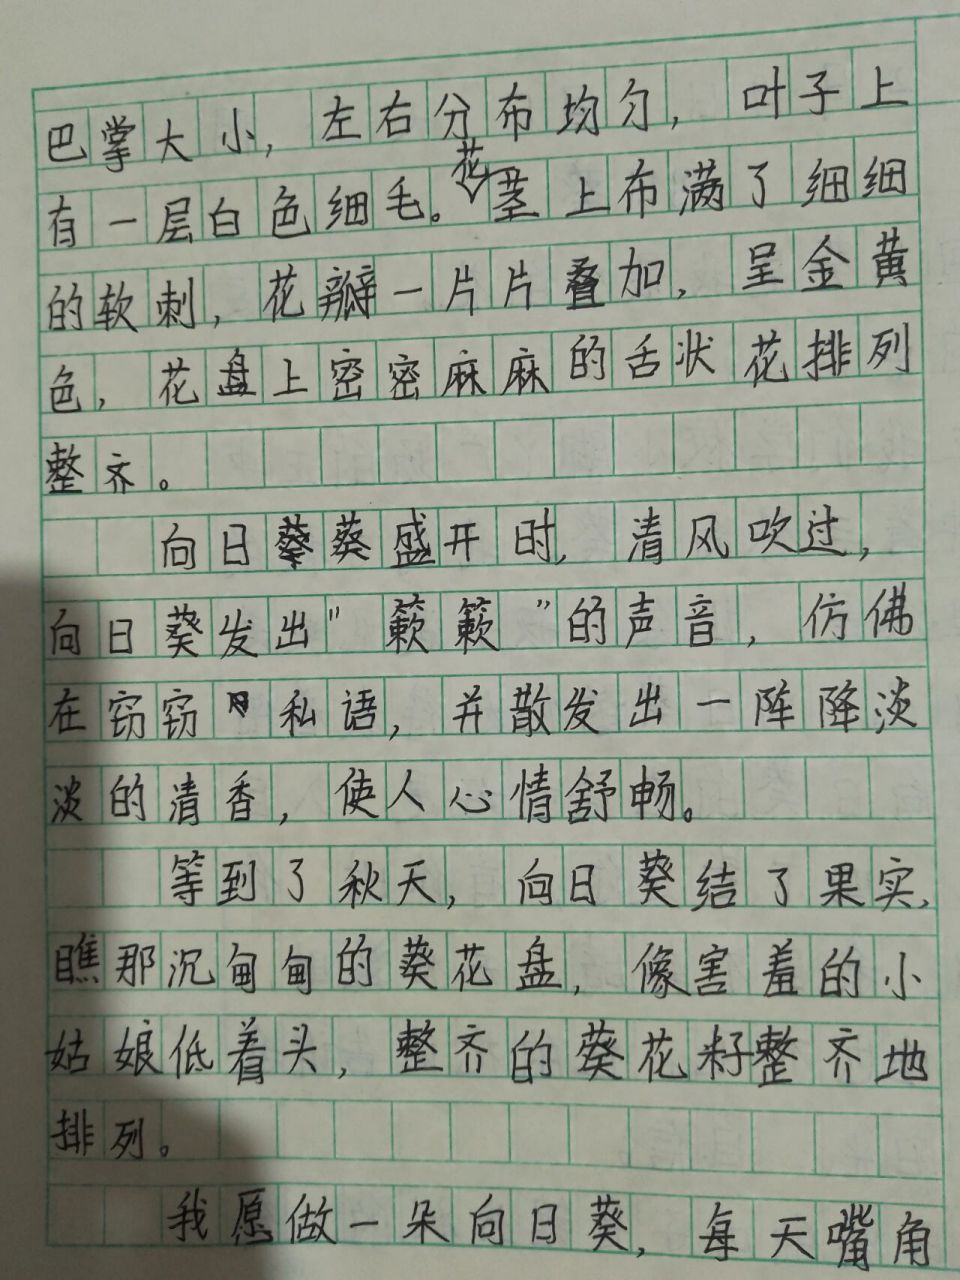 巴掌大小，左右分布均匀，叶子上
有一层白色细毛。花茎上布满了细细
的软刺，花瓣一片片叠加，呈金黄
色，花盘上密密麻麻的舌状花排列
整齐。
向日葵葵盛开时，清风吹过，
向日葵发出“簌簌”的声音，仿佛
在窃窃私语，并散发出一阵降淡
淡的清香，使人心情舒畅。
等到了秋天，向日葵结了果实，
瞧那沉甸甸的葵花盘，像害羞的小
姑娘低着头，整齐的葵花籽整齐地
排列。
我愿做一朵向日葵，每天嘴角